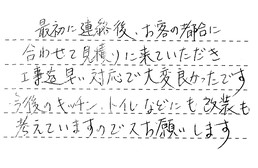 最初に連絡後、お客の都合に
合わせて見積りに来ていただき
工事迄早い対応で大変良かったです
今後のキッチン、トイレなどにも改装も
考えていますので又お願いします